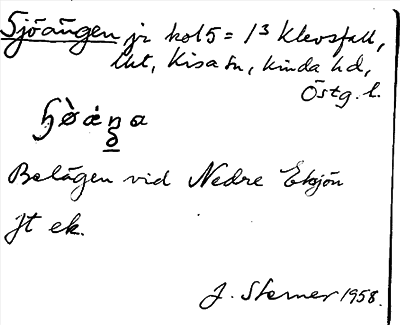 Sjöängen jr kol 5 = 1³ Klevsfall,
lht, Kisa sn, Kinda hd,
Östg. l.
Belägen vid Nedre Eksjön
Jt ek.
J. Sterner 1958.